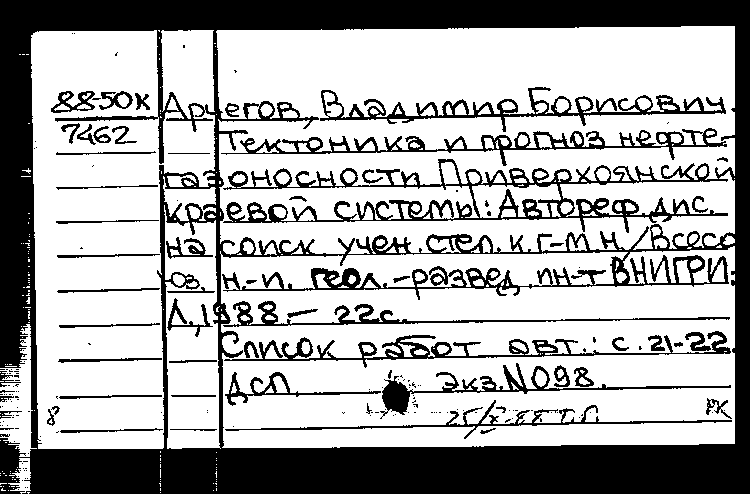 88-50к Арчегов, Владимир Борисович.
7462 Тектоника и прогноз нефте-
газоносности Приверхоянской
краевой системы: Автореф. дис.
на соиск. учен. степ. к.г-м.н./Всесо
юз. н.-и. геол.-развед. ин-т ВНИГРИ:
Л., 1988.- 22с.
Список работ авт.: с. 21-22.
ДСП. Экз.№098.
8 РК